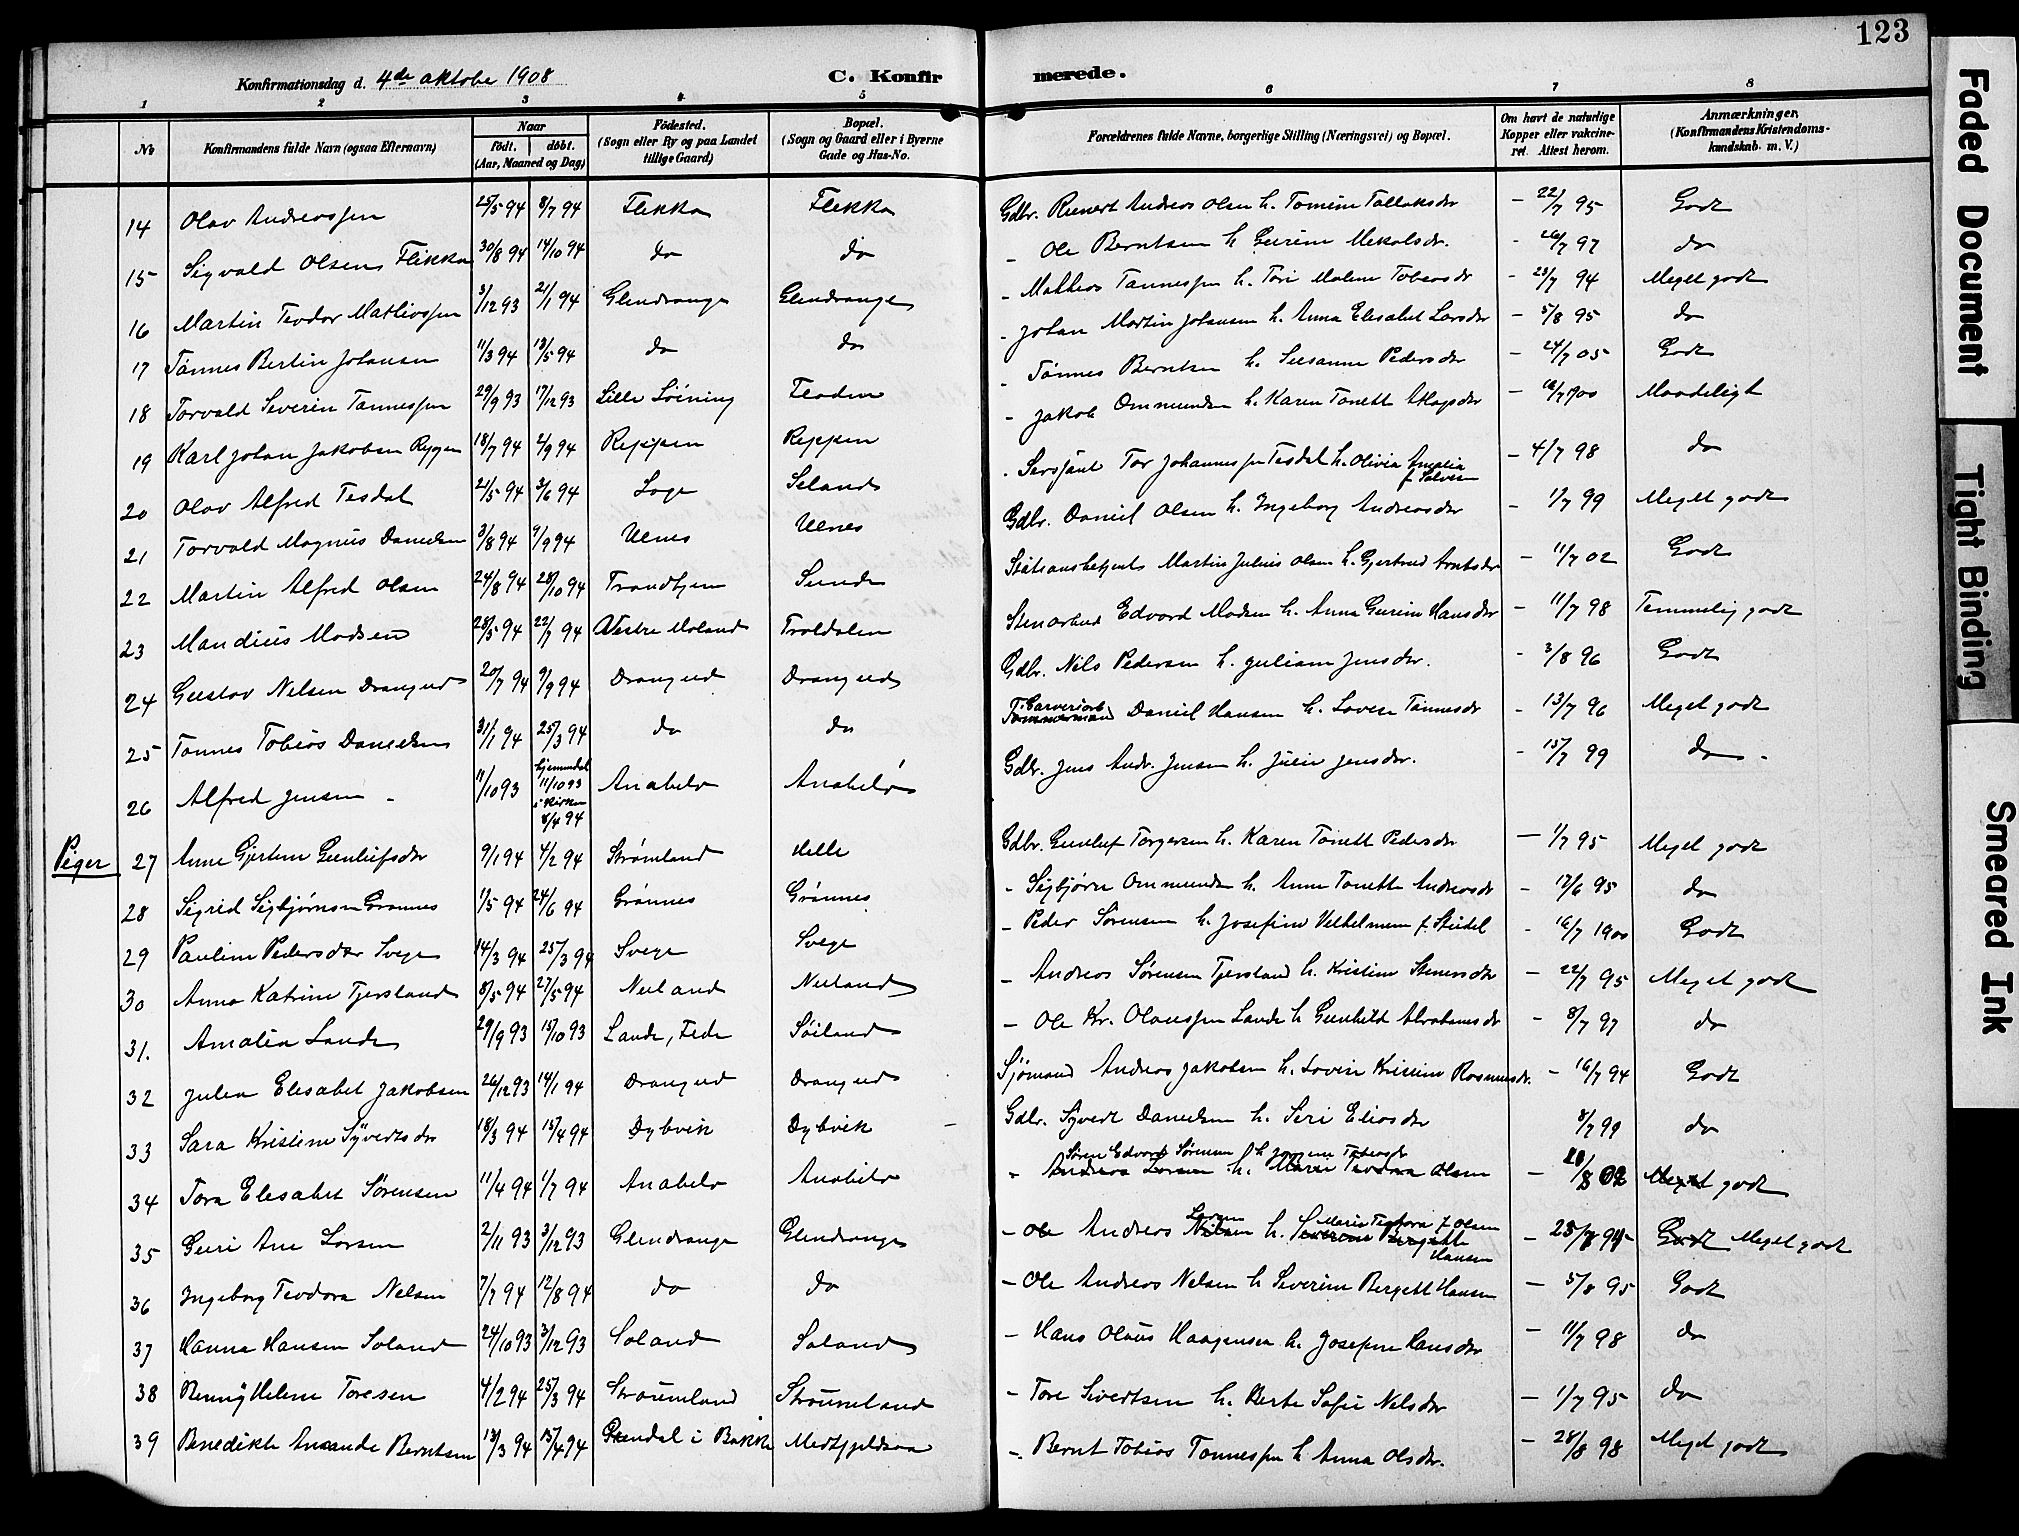 123
Konfirmationsdag d. 4de oktober 1908
C. Konfirmerede.
1 2 3 4 5 6 7 8
№ Konfirmandens fulde Navn (ogsaa Efternavn) Naar født. døbt. (Aar, Maaned og Dag) Fødested. (Sogn eller By og paa Landet tillige Gaard) Bopæl. (Sogn og Gaard eller i Byerne Gade og Hus-No. Forældrenes fulde Navne, borgerlige Stilling (Næringsvei) og Bopæl. Om havt de naturlige Kopper eller vakcineret. Attest herom. Anmærkninger. (Konfirmandens Kristendomskundskab. m. V.)
14 Olav Andreassen 25/5 94 8/7 94 Flikka Flikka Gdbr. Reinert Andreas Olsen h. Tomine Tallaksdr — 22/7 95 Godt
15 Sigvald Olsen Flikka 30/8 94 14/10 94 do do - Ole Berntsen h Gurine Mekalsdr. - 26/7 97 do
16 Martin Teodor Mathiassen 3/12 93 21/1 94 Glendrange Glendrange - Mathias Tønnessen h. Tori Malene Tobiasdr - 23/7 94 Meget godt
17 Tønnes Bertin Johansen 11/3 94 13/5 94 do do - Johan Martin Johansen h. Anna Elisabet Larsdr - 5/8 95 do
18 Torvald Severin Tønnessen 29/9 93 17/12 93 Lille Løining Flaaden - Tønnes Berntsen h. Susanne Pedersdr — 24/7 05 Godt
19 Karl Johan Jakobsen Ryggen 18/7 94 2/9 94 Reppen Reppen - Jakob Ommundsen h. Karen Tonette Aslagsdr — 16/7 1900 Maadeligt
20 Olav Alfred Tesdal 21/5 94 3/6 94 Loge Seland - Sersjant Tor Johannessen Tesdal h. Olivia Amalia f. Salvesen — 4/7 98 do
21 Torvald Magnus Danielsen 3/8 94 9/9 94 Ulnes Ulnes Gdbr. Daniel Olsen h. Ingeborg Andreasdr - 1/7 99 Meget godt
22 Martin Alfred Olsen 24/8 94 28/10 94 Trondhjem Sunde Stationsbetjent Martin Julius Olsen h. Gjertrud Arntsdr — 11/7 02 Godt
23 Mandius Madsen 28/5 94 22/7 94 Vestre Moland Troldalen Stenarbeid Edvard Madsen h. Anna Gurine Hansdr — 11/7 98 Temmelig godt
24 Gustav Nelsen Drangeid 20/7 94 9/9 94 Drangeid Drangeid Gdbr. Nils Pedersen h. Juliane Jensdr. - 3/8 96 Godt
25 Tønnes Tobias Danielsen 31/1 94 25/3 94 do do Tømmermand Garveriarb Daniel Hansen h. Lovise Tønnesdr - 13/7 96 Meget godt
26 Alfred Jensen - 11/10 93 hjemmedøbt 11/10 93 i Kirken 8/4 94 Anabelø Anabelø Gdbr. Jens Andr. Jensen h. Julie Jensdr. - 15/7 99 do -
Piger 27 Anne Gjertine Gunlufsdr 9/1 94 4/2 94 Strømland Helle Gdbr. Gunluf Torgersen h. Karen Tonette Pedersdr — 1/7 95 Meget godt
28 Sigrid Sigbjørnsen Grønnes 1/5 94 24/6 94 Grønnes Grønnes - Sigbjørn Ommundsen h. Anne Tonette Andreasdr — 12/6 95 do
29 Pauline Pedersdr Svege 14/3 94 25/3 94 Svege Svege - Peder Sørensen h. Josefine Velhelmine f. Steidel - 16/7 1900 Godt
30 Anna Katrine Tjersland 8/5 94 27/5 94 Nuland Nuland - Andreas Sørensen Tjersland h. Kristine Stenersdr — 22/7 95 Meget godt
31. Amalia Lande 29/9 93 15/10 93 Lande, Fede Søiland - Ole Kr. Olaussen Lande h Gunhild Abrahamsdr - 8/7 97 do
32 Julia Elisabet Jakobsen 26/12 93 14/1 94 Drangeid Drangeid Sjømand Andreas Jakobsen h. Lovise Kristine Rasmusdr. - 16/7 94 Godt
33 Sara Kristine Syvertsdr 18/3 94 15/4 94 Dybvik Dybvik Gdbr. Syvert Danielsen h. Seri Eliasdr 8/7 99 do
34 Tora Elisabet Sørensen 11/4 94 1/7 94 Anabelø Anabelø - Andreas Larsen h. Marie Teodora Olsen Søren Edvard Sørensen h Jorgine Tobiasdr — 20/8 02 Meget godt
35 Guri Ane Larsen 2/11 93 3/12 93 Glendrange Glendrange - Ole Andreas Nilsen Larsen h. Severine Bergette Hansen Marie Teodora f. Olsen — 25/7 94 Godt Meget godt
36 Ingeborg Teodora Nelsen 7/7 94 12/8 94 do do - Ole Andreas Nelsen h Severine Bergette Hansen — 5/8 95 Godt
37 Hanna Hansen Soland 24/10 93 3/12 93 Soland Soland - Hans Olaus Haagensen h. Josefine Hansdr — 11/7 98 do
38 Renny Helene Toresen 4/2 94 25/3 94 Straumland Straumeland - Tore Sivertsen h. Berte Sofie Nelsdr — 1/7 95 do
39 Benedikte Amanda Berntsen 13/3 94 15/4 94 i Bakke Medfjeldsaa - Bernt Tobias Tønnessen h Anna Olsdr. — 28/8 98 Meget godt
Faded Document
Tight Binding
Smeared Ink